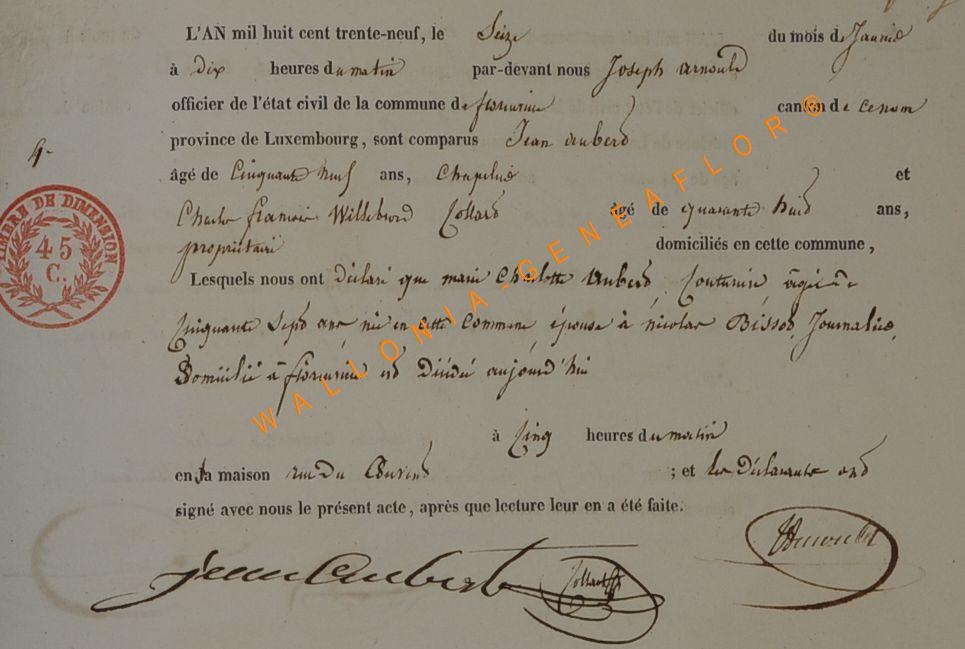 L'AN mil huit cent trente-neuf, le Seize du mois de Janvie
à dix heures du matin par-devant nous Joseph arnould
officier de l'état civil de la commune de florenville canton de
province de Luxembourg, sont comparus Jean aubert
âgé de Cinquante neuf ans, Chapelier et
Charles francois Willebrord Collard âgé de quarante huit ans,
propriétaire domiciliés en cette commune,
Lesquels nous ont déclaré que marie Charlotte aubert Couturière agée de
Cinquante Sept ans née en cette Commune épouse à nicolas Bissot Journalier
Domicilié à florenville est décédée aujourd'hui
à Cinq heures du matin
en sa maison rue Du ; et les déclarants ont
signé avec nous le présent acte, après que lecture leur en a été faite.
4.
TIMBRE DE DIMENSION
45
C.
WALLONIA-GENEAFLOR®
jean Aubert Collard Arnould